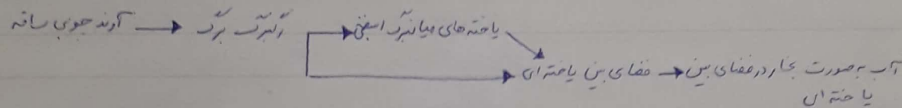 آوند چوبی ساقه → رگبرگ برگ → یاخته های میانبرگ اسفنجی
فضای بین یاخته ای → آب به صورت بخار در فضای بین
یاخته ای